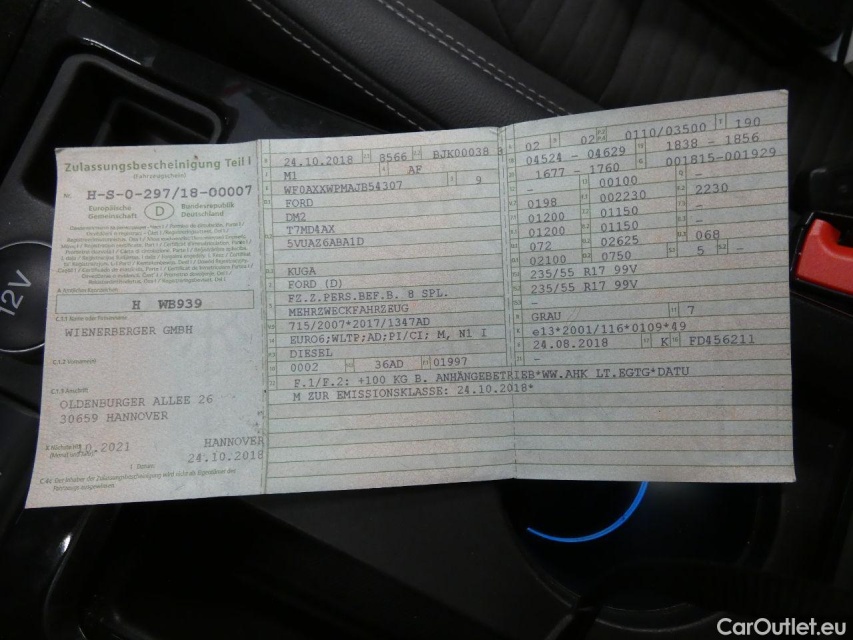 Zulassungsbescheinigung Teil I
(Fahrzeugschein)
Nr. H-S-0-297/18-00007
Europäische Gemeinschaft
D
Bundesrepublik Deutschland
H WB939
C.1.1 Name oder Firmenname
WIENERBERGER GMBH
C.1.2 Vorname(n)
C.1.3 Anschrift
OLDENBURGER ALLEE 26
30659 HANNOVER
10.2021
HANNOVER
24.10.2018
C.4c Der Inhaber der Zulassungsbescheinigung wird nicht als Eigentümer des
Fahrzeugs ausgewiesen.
24.10.2018 8566 BJK00038
M1 AF
WF0AXXWPMAJB54307 9
FORD
DM2
T7MD4AX
5VUAZ6ABA1D
KUGA
FORD (D)
FZ.Z.PERS.BEF.B. 8 SPL.
MEHRZWECKFAHRZEUG
715/2007*2017/1347AD
EURO6;WLTP;AD;PI/CI; M, N1 I
DIESEL
0002 36AD 01997
F.1/F.2: +100 KG B. ANHÄNGEBETRIEB*WW.AHK LT.EGTG*DATU
M ZUR EMISSIONSKLASSE: 24.10.2018*
02 02 0110/03500 190
04524 - 04629 1838 - 1856
1677 - 1760 001815-001929
- 00100 -
0198 002230 2230
01200 01150 -
01200 01150 -
072 02625 068
02100 0750 5 -
235/55 R17 99V
235/55 R17 99V
-
GRAU 7
e13*2001/116*0109*49
24.08.2018 K FD456211
-
12V
CarOutlet.eu